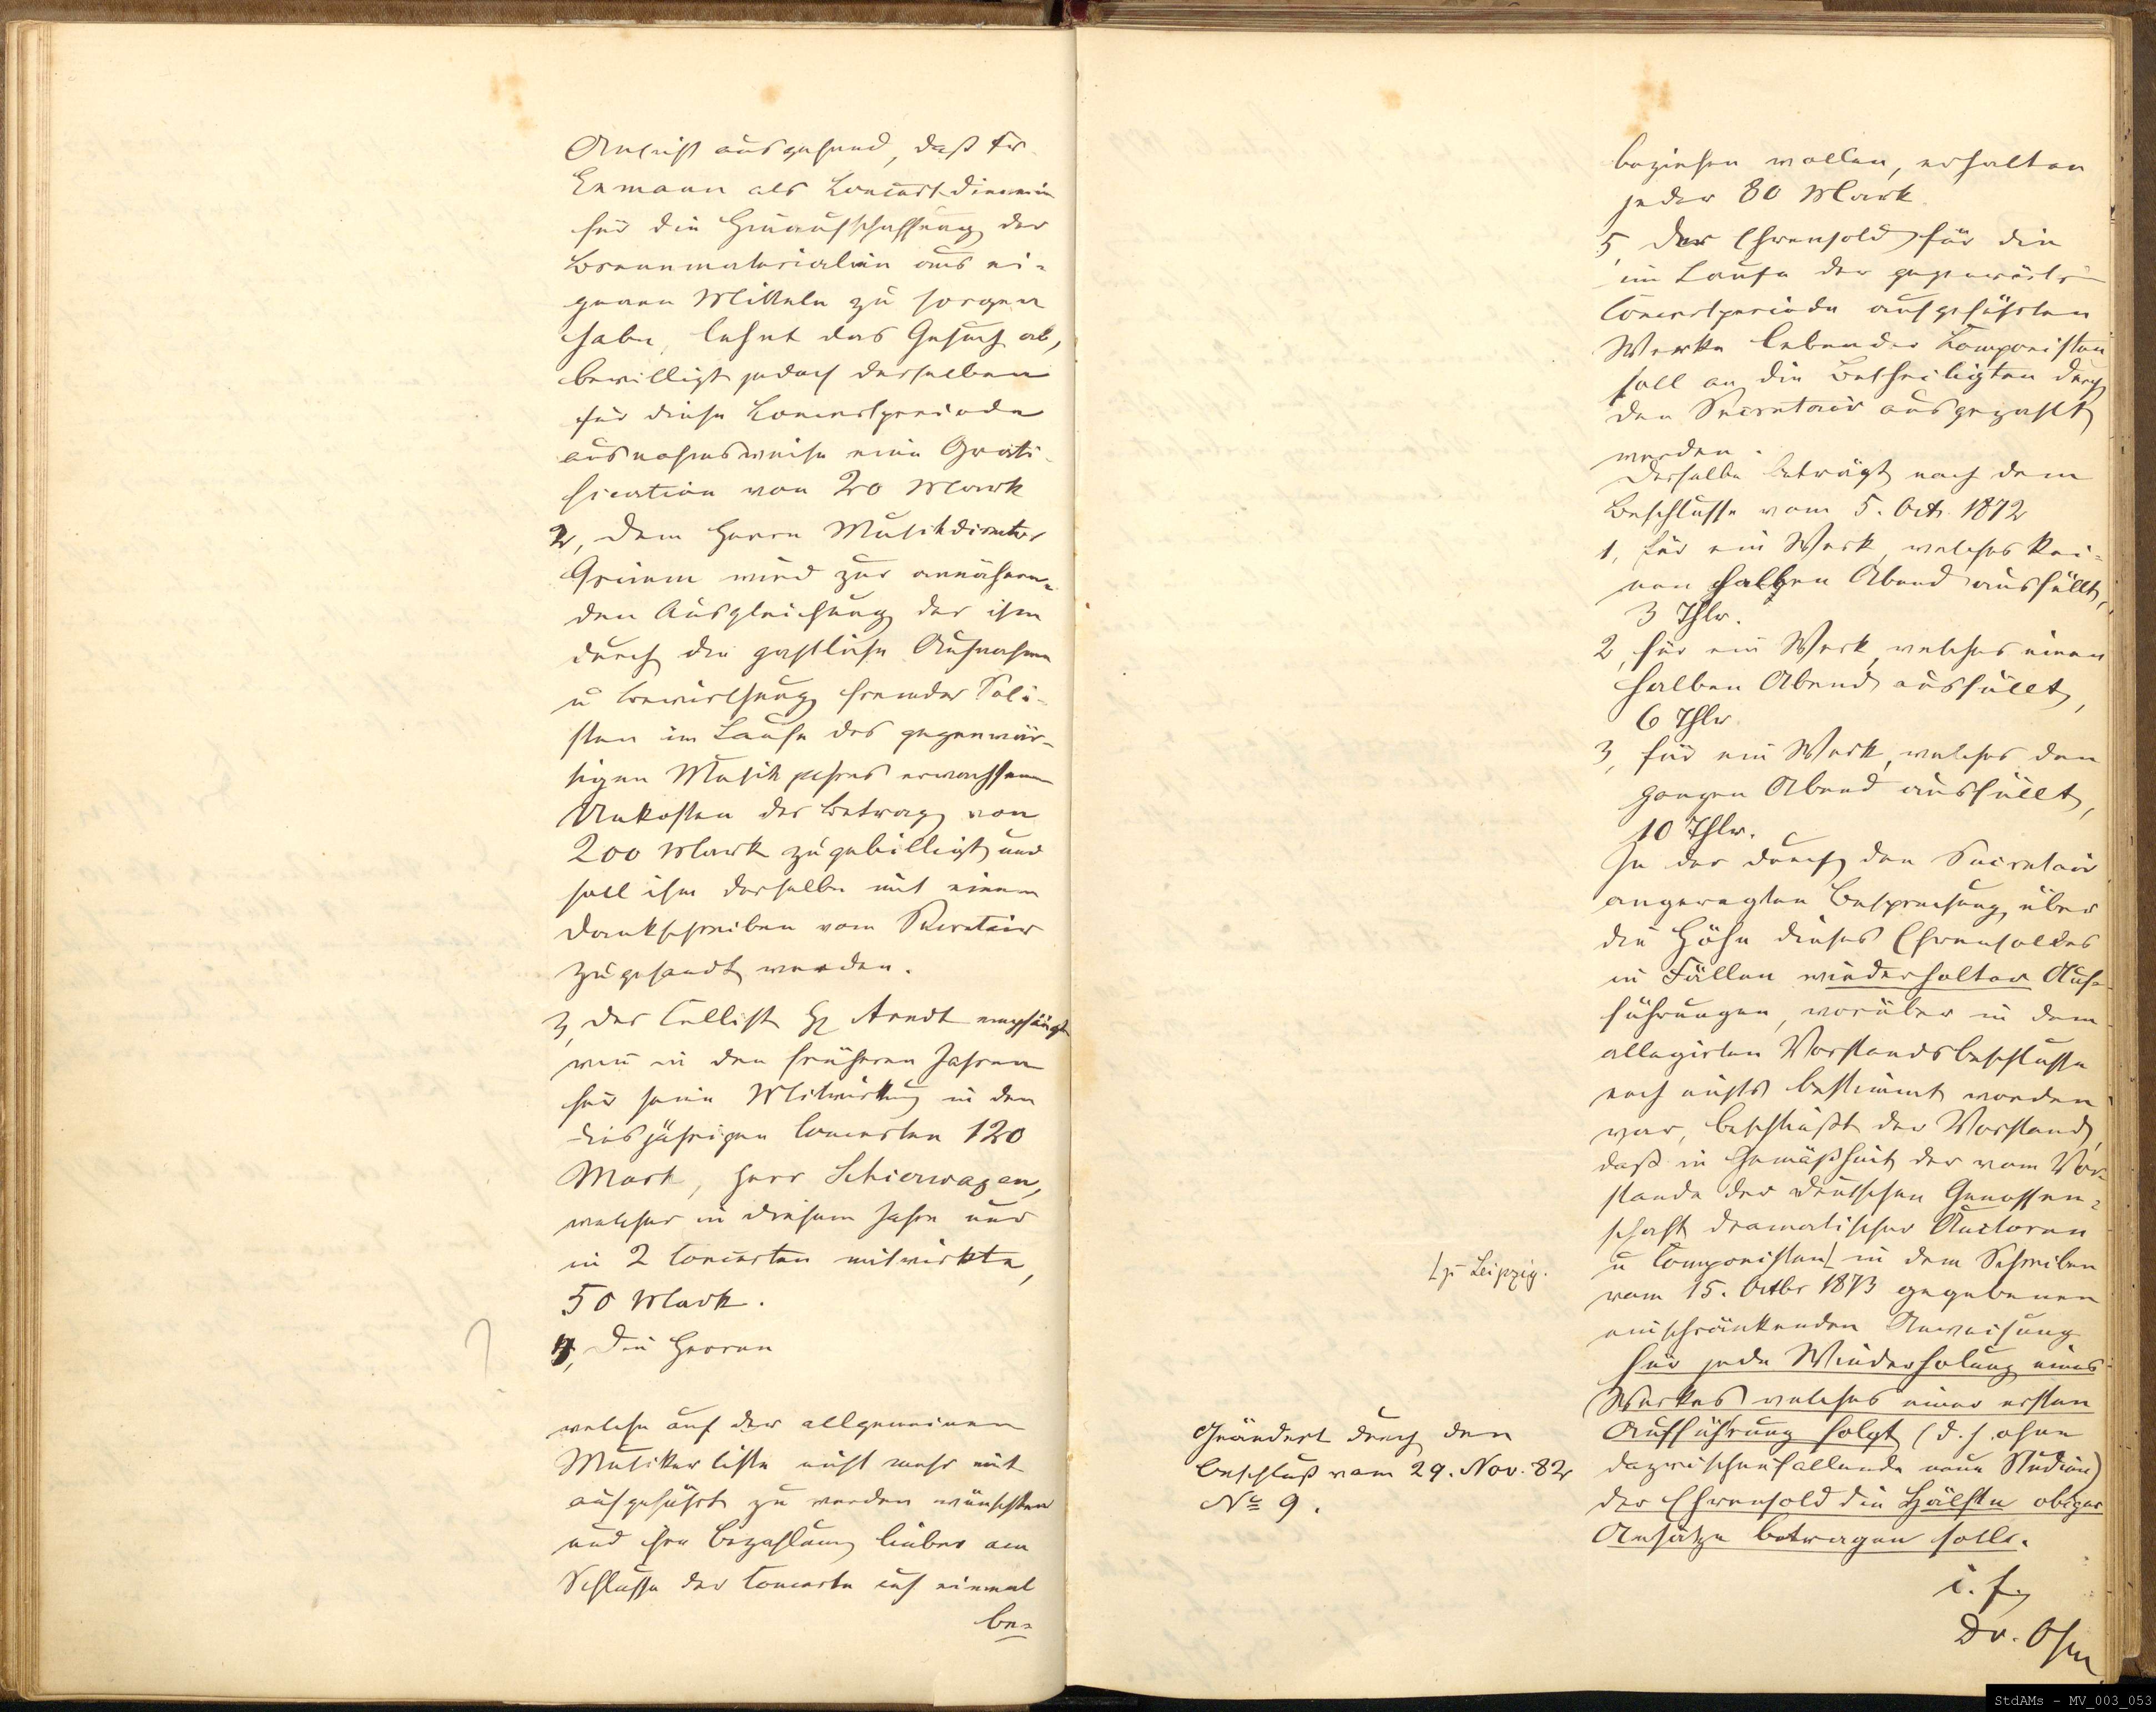 Ansicht ausgehend, daß Fr.
Exmann als Concertdienerin
für die Hinaufschaffung der
Brennmaterialien aus ei-
genen Mitteln zu sorgen
habe, lehnt das Gesuch ab,
bewilligt jedoch derselben
für diese Concertperiode
ausnahmsweise eine Grati-
fication von 20 Mark
2, Dem Herrn Musikdirector
Grimm wird zur annähern-
den Ausgleichung der ihm
durch die gastliche Aufnahme
u Bewirthung fremder Soli-
sten im Laufe des gegenwär-
tigen Musikjahres erwachsenen
Unkosten der Betrag von
200 Mark zugebilligt und
soll ihm derselbe mit einem
Dankschreiben vom Secretair
zugesandt werden.
3, Der Cellist H Arndt empfängt
wie in den früheren Jahren
für seine Mitwirkung in den
diesjährigen Concerten 120
Mark, Herr Schierwagen,
welcher in diesem Jahre nur
in 2 Concerten mitwirkte,
50 Mark.
4, Die Herren
welche auf der allgemeinen
Musikerliste nicht mehr mit
aufgeführt zu werden wünschten
und ihre Bezahlung lieber am
Schlusse der Concerte auf einmal
be-
beziehen wollen, erhalten
jeder 80 Mark.
5, Der Ehrensold für die
im Laufe der gegenwärtigen
Concertperiode aufgeführten
Werke lebender Componisten
soll an die Betheiligten durch
den Secretair ausgezahlt
werden.
Derselbe beträgt nach dem
Beschlusse vom 5. Oct. 1872
1, für ein Werk, welches kei-
nen halben Abend ausfüllt,
3 Thlr.
2, für ein Werk, welches einen
halben Abend ausfüllt,
6 Thlr.
3, für ein Werk, welches den
ganzen Abend ausfüllt,
10 Thlr.
In der durch den Secretair
angeregten Besprechung über
die Höhe dieses Ehrensoldes
in Fällen wiederholter Auf-
führungen, worüber in dem
allegirten Vorstandsbeschlusse
noch nichts bestimmt worden
war, beschließt der Vorstand,
daß in Gemäßheit der vom Vor-
stande der deutschen Genossen-
schaft dramatischer Auctoren
u Componisten in dem Schreiben
zu Leipzig.
vom 15. Octbr 1873 gegebenen
einschränkenden Anweisung
für jede Wiederholung eines
Werkes welches einer ersten
Aufführung folgt (d. h. ohne
dazwischenfallende neue Studien)
der Ehrensold die Hälfte obiger
Ansätze betragen solle.
Geändert durch den
Beschluß vom 29. Nov. 82
No 9.
i. f.
Dr. Ohm